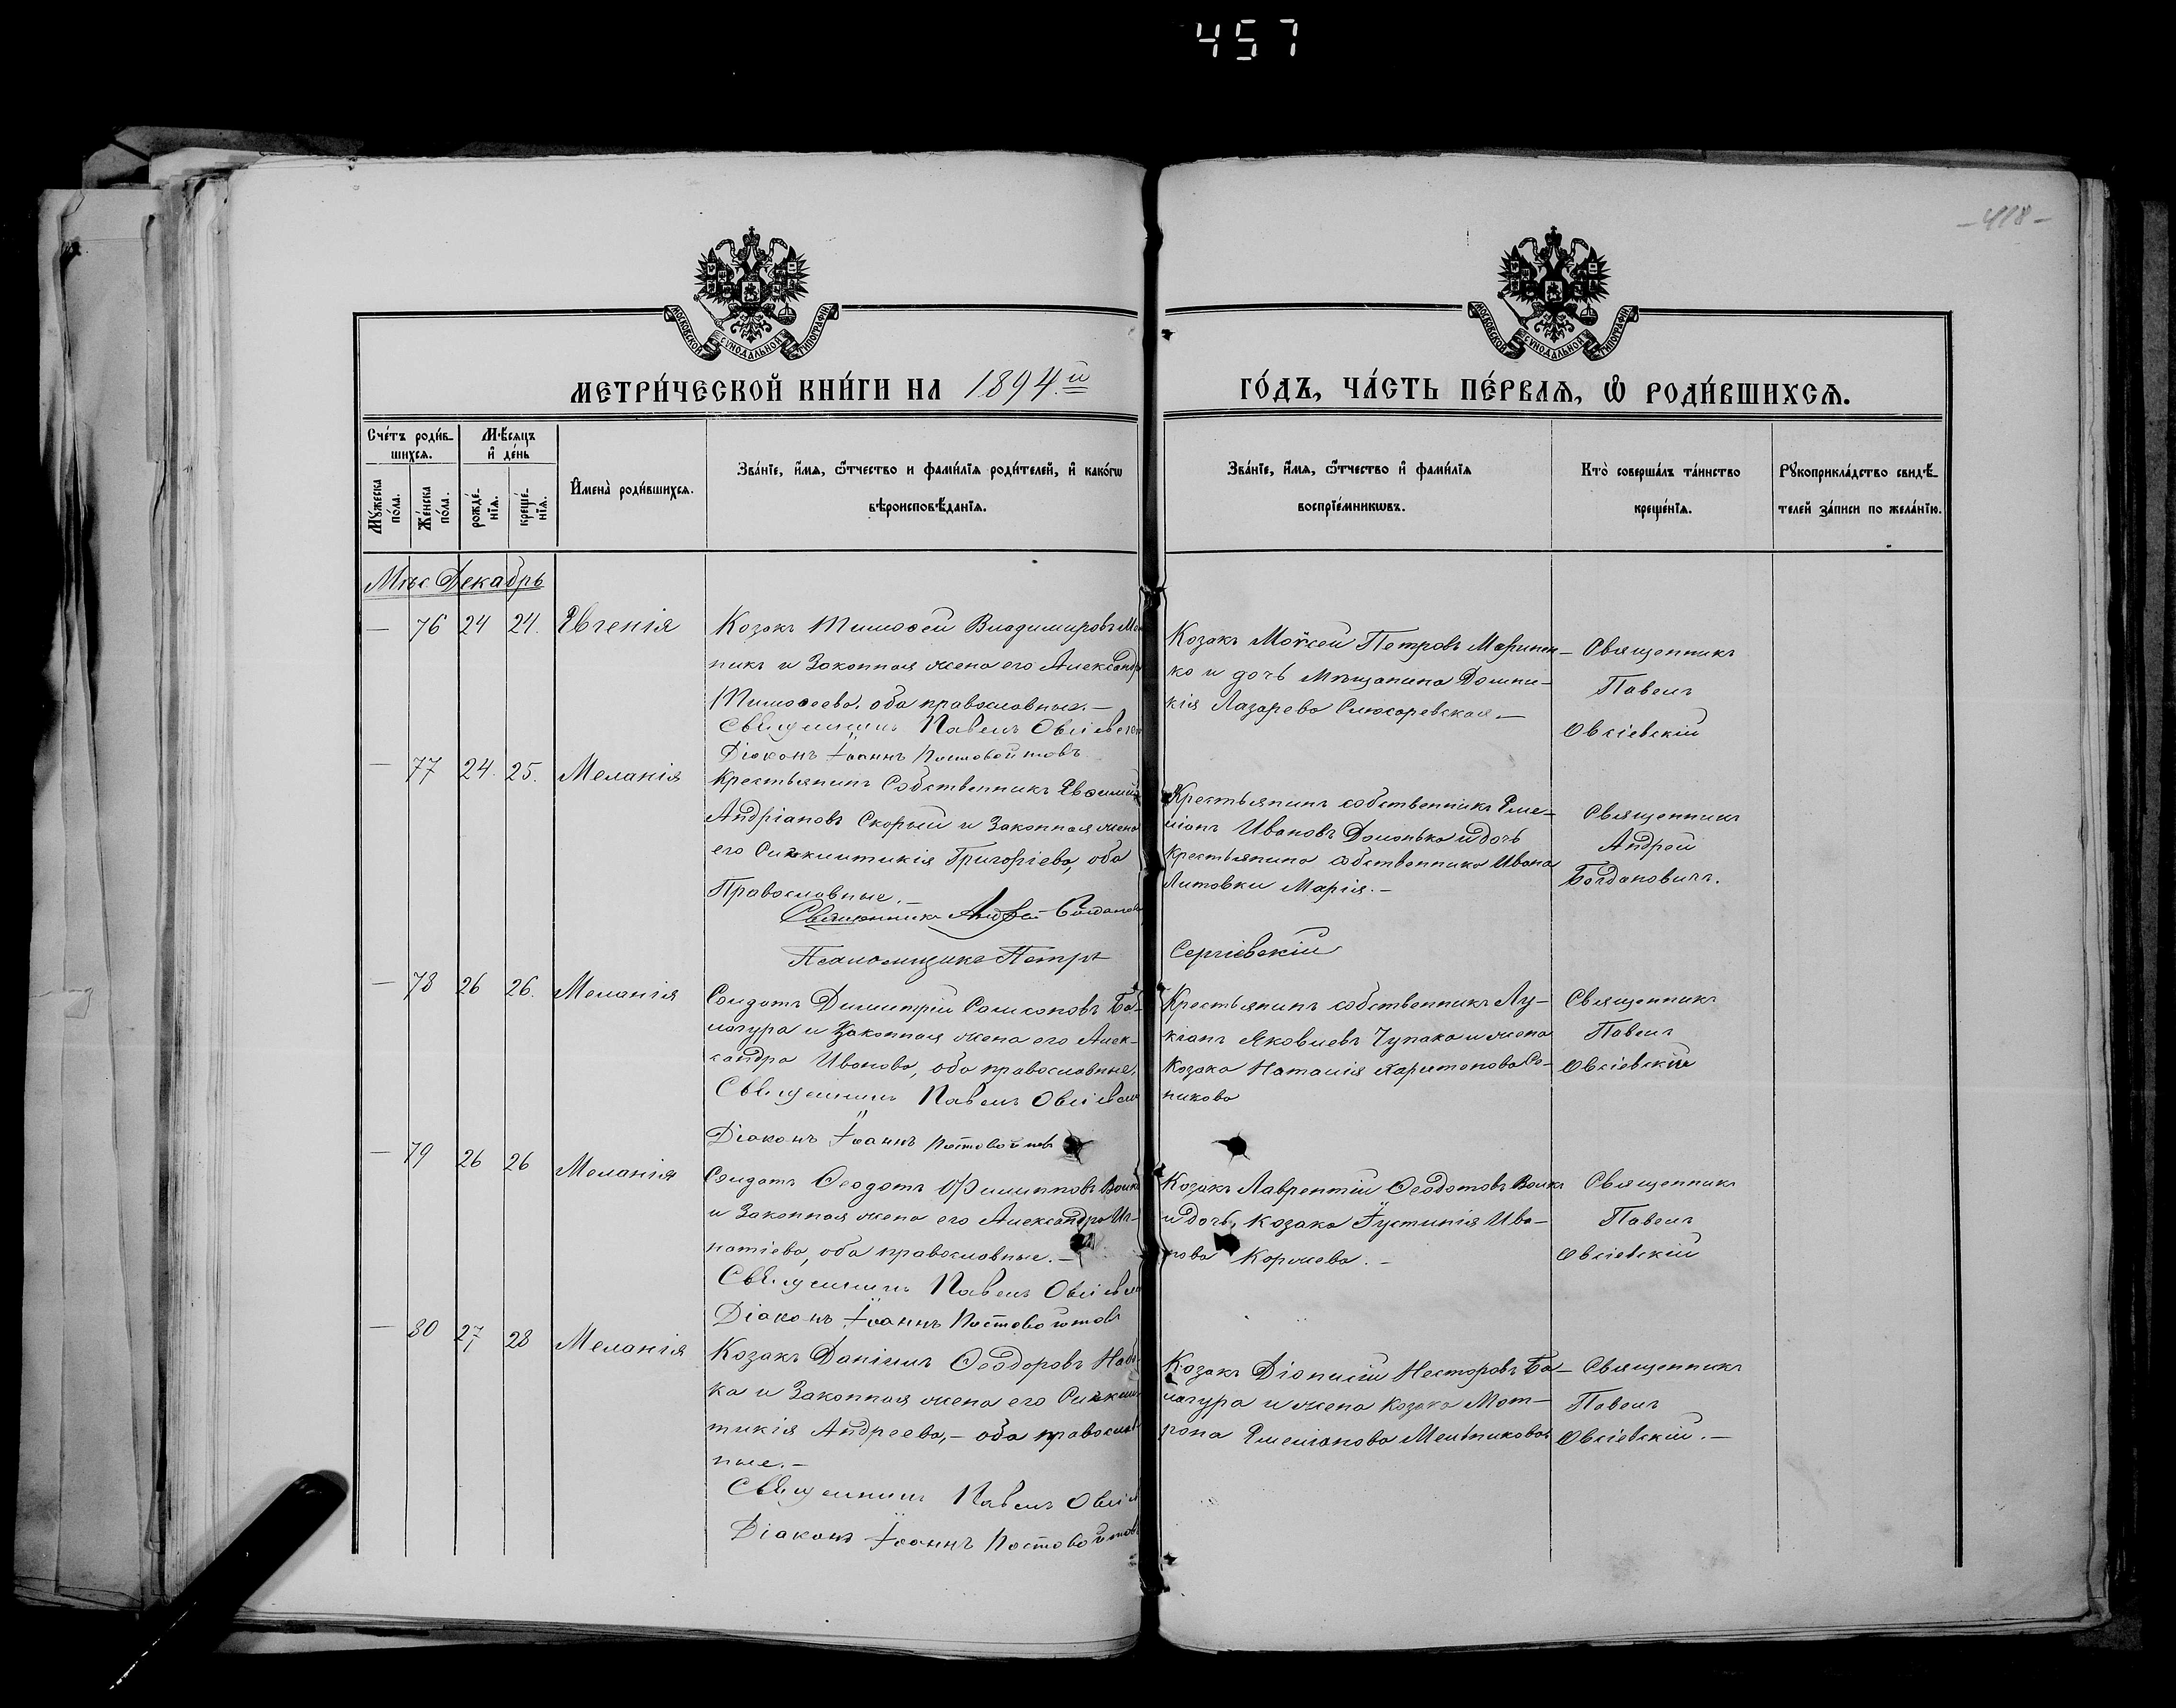 457
-418-
МОСКОВСКОЙ СѴНОДАЛЬНОЙ ТИПОГРАФІИ
МОСКОВСКОЙ СѴНОДАЛЬНОЙ ТИПОГРАФІИ
МЕТРИ́ЧЕСКОЙ КНИ́ГИ НА 1894.й
ГО́ДЪ, ЧА́СТЬ ПЕ́РВАѦ, Ѡ҆ РОДИ́ВШИХСѦ.
Сче́тъ роди́в-
шихсѧ.
Мꙋ́жеска по́ла.
Же́нска по́ла.
Мѣ́сѧцъ
и҆ де́нь
рожде́-нїѧ.
креще́-нїѧ.
И҆мена̀ роди́вшихсѧ.
Зва́нїе, и҆́мѧ, ѻ҆́тчество и фами́лїѧ роди́телей, и҆ како́гѡ
вѣроисповѣ́данїѧ.
Зва́нїе, и҆́мѧ, ѻ҆́тчество и҆ фами́лїѧ
воспрїе́мникѡвъ.
Кто̀ соверша́лъ та́инство
креще́нїѧ.
Рꙋкоприкла́дство свидѣ́-
телей за́писи по жела́нїю.
Мѣс Декабрь
— 76 24 24. Евгенія
Козакъ Тимоѳей Владимировъ
никъ и Законная жена его Александра
Тимоѳеева, оба православные.—
Священникъ Павелъ Овсіевскій
Діаконъ Іоаннъ Постовойтовъ
Козакъ Моѵсей Петровъ Маринен-
ко и дочь мѣщанина Домни-
кія Лазарева Слюсаревская.—
Священникъ
Павелъ
Овсіевскій
— 77 24. 25. Меланія
Крестьянинъ Собственникъ Евѳимій
Андріановъ Скорый и Законная жена
его Синклитикія Григоріева, оба
Православные.—
Священникъ Андрей Богданов
Псаломщикъ Петръ Сергіевскій
Крестьянинъ собственникъ Еме-
ліанъ Ивановъ Долонька и дочь
Крестьянина собственника Ивана
Литовки Марія.—
Священникъ
Андрей
Богдановичъ.
— 78 26 26. Меланія
Солдатъ Димитрій Самсоновъ Ба-
лагура и Законная жена его Алек-
сандра Иванова, оба православные.
Священникъ Павелъ Овсіевскій
Діаконъ Іоаннъ Постовойтовъ
Крестьянинъ собственникъ Лу-
кіанъ Яковлевъ Чупака и жена
Козака Наталія Харитонова
никова
Священникъ
Павелъ
Овсіевскій
— 79 26 26 Меланія
Солдатъ Ѳеодотъ Филипповъ Волкъ
и Законная жена его Александра Иг-
натіева, оба православные.—
Священникъ Павелъ Овсіевскій
Діаконъ Іоаннъ Постовойтовъ
Козакъ Лаврентій Ѳеодотовъ Волкъ
и дочь Козака Іустинія Ива-
нова Коржева.—
Священникъ
Павелъ
Овсіевскій
— 80 27 28 Меланія
Козакъ Даніилъ Ѳеодоровъ
ка и Законная жена его Синкли-
тикія Андреева,— оба православ-
ные.—
Священникъ Павелъ Овсіев
Діаконъ Іоаннъ Постовойтовъ
Козакъ Діонисій Несторовъ Ба-
лагура и жена Козака Мот-
рона Емеліанова Мельникова
Священникъ
Павелъ
Овсіевскій.—